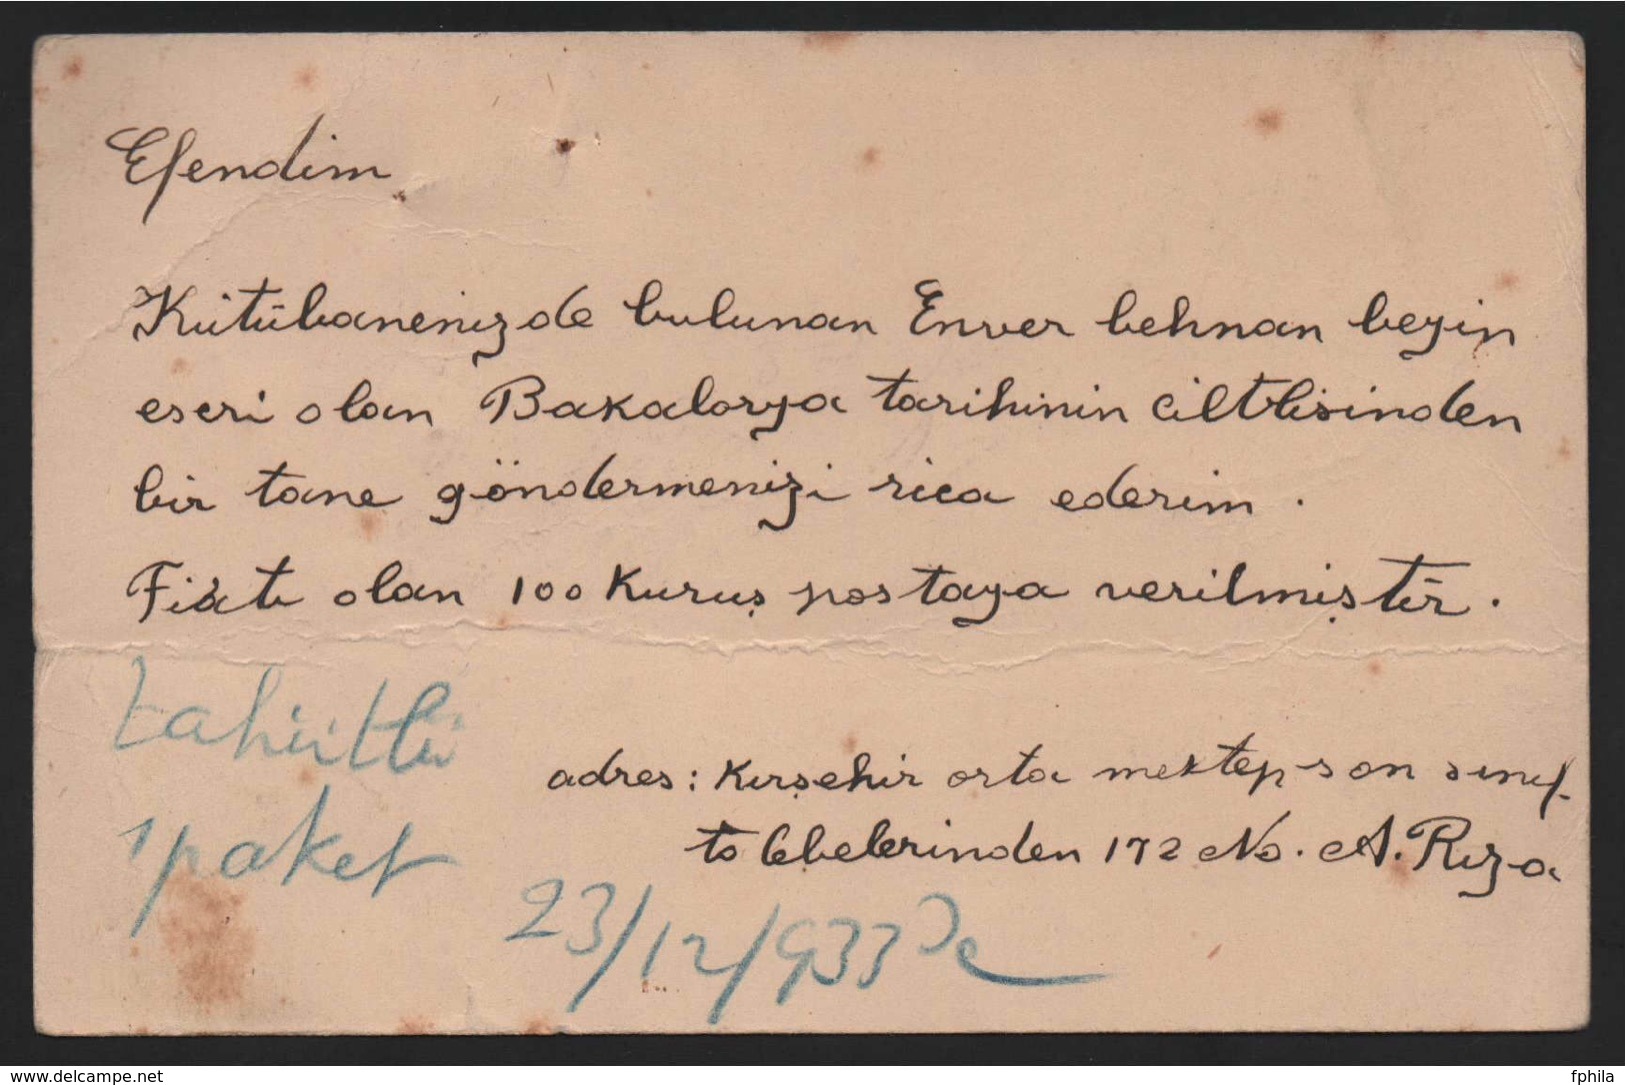 Efendim
Kütübanenizde bulunan Enver behnan beyin
eseri olan Bakalorya tarihinin ciltlisinden
bir tane göndermenizi rica ederim .
Fiatı olan 100 Kuruş postaya verilmiştir .
tahütlü
1 paket
adres : Kırşehir orta mektep son sınıf
talebelerinden 172 No. A. Rıza
23/12/933 De
www.delcampe.net
fphila